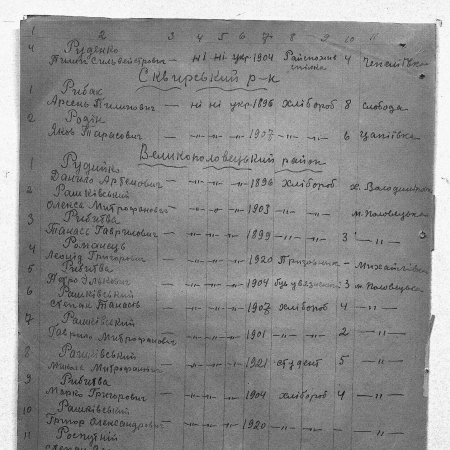 1 2 3 4 5 6 7 8 9 10 11
4 Руденко
Пилип Сильвестрович — ні ні укр. 1904 4
Сквирський р-к
1 Рибак
Арсень Пилипович — ні ні укр. 1896 хлібороб 8 слобода
2 Родін
Яків Тарасович — „ — „ — „ — 1907 — „ — „ — 6 Цапіївка
Великополовецький район
1 Рудийко
Данило Артемович — „ — „ — „ — 1896 хлібороб х.
2 Рашківський
Олекса Митрофанович — „ — „ — „ — 1903 — „ — „ — м. Половецьке
3 Рибитва
Танась Гаврилович — „ — „ — „ — 1899 — „ — „ — 3 — „ —
4 Романець
Леонід Григорович — „ — „ — „ — 1920 Призовник — Михайлівка
5 Рибитва
Петро — „ — „ — „ — 1904 3 м. Половецьке
6 Рашківський
Степан Танасів — „ — „ — „ — 1907 хлібороб 4 — „ —
7 Рашківський
Гаврило Митрофанович — „ — „ — „ — 1901 — „ — 2 — „ —
8 Рашківський
Митрофанович — „ — „ — „ — 1921 студент 5 — „ —
9 Рибитва
Марко Григорович — „ — „ — „ — 1904 хлібороб 4 — „ —
10 Рашківський
Григор Олександрович — „ — „ — „ — 1920 — „ — „ — „ —
11 Роспутній